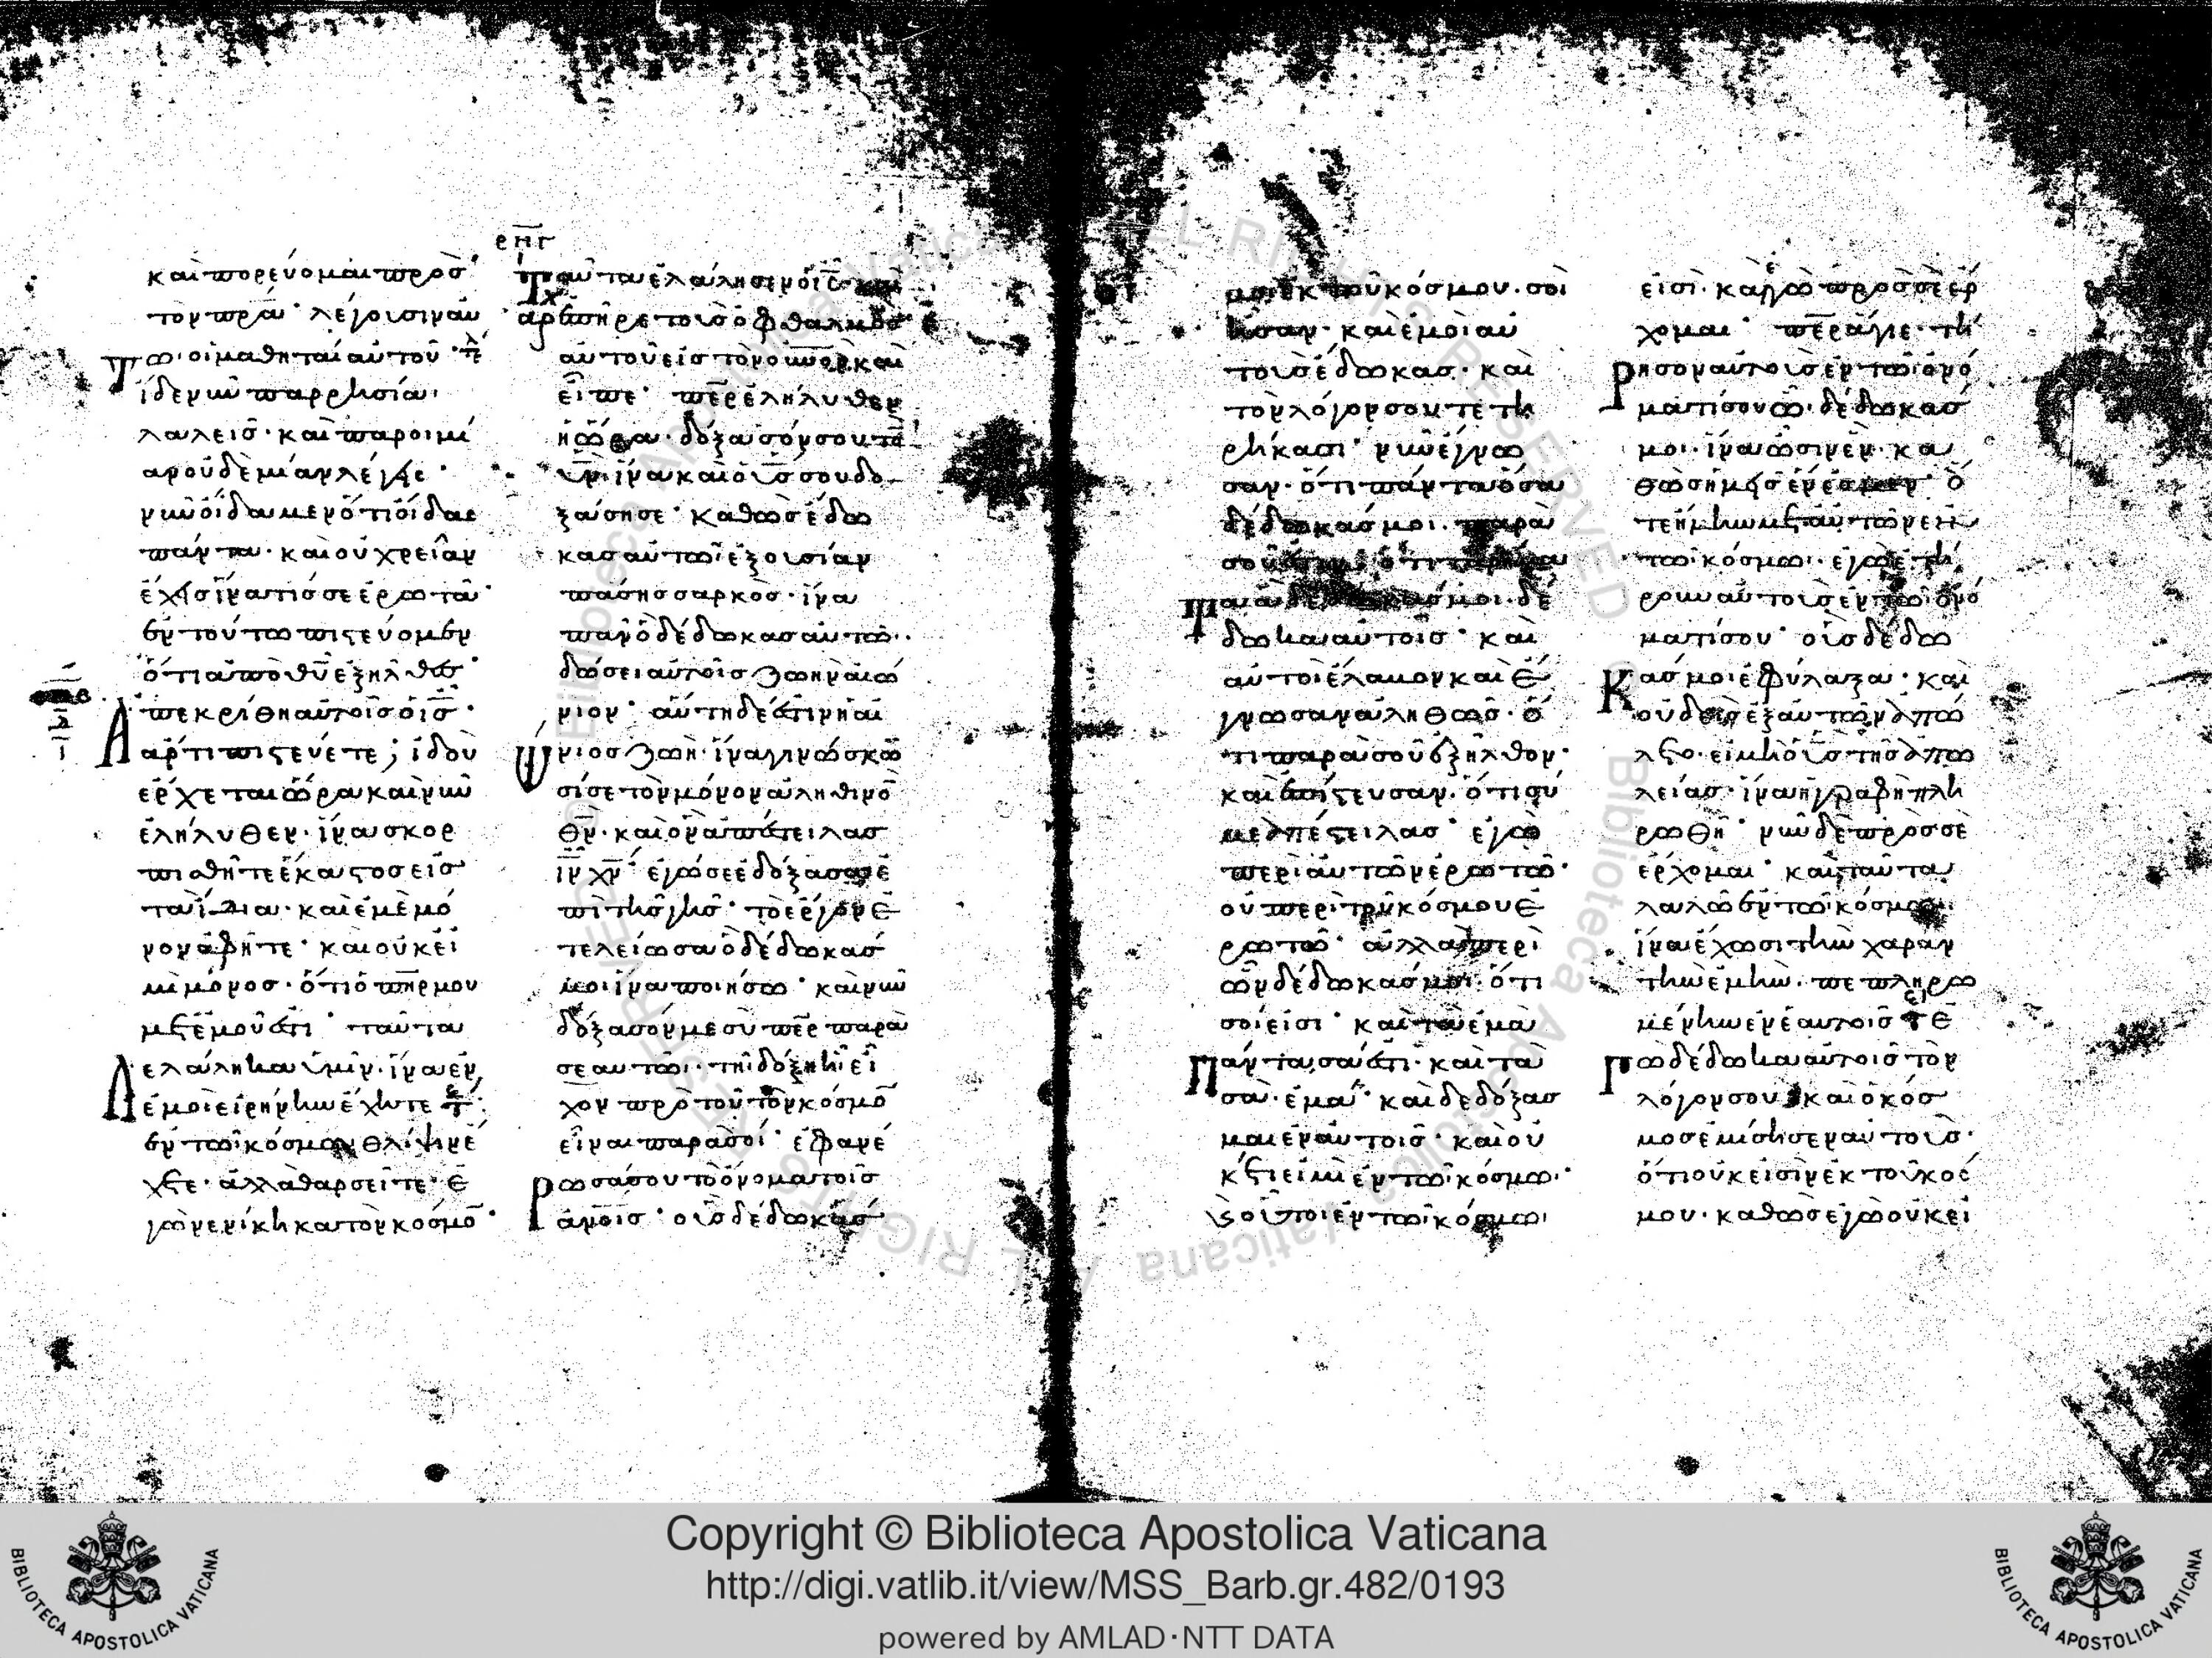 επιγ
καὶ πορεύομαι πρὸς
τὸν πρ̅α· λέγουσιν αὐ
τῶ οἱ μαθηταὶ αὐτοῦ·
ἴδε νῦν παρρησία
λαλεῖς· καὶ παροιμί
αν οὐδεμίαν λέγεις·
νῦν οἴδαμεν ὅτι οἶδας
πάντα· καὶ οὐ χρείαν
ἔχεις ἵνα τίς σε ἐρωτᾶ·
ἐν τούτω πιστεύομεν
ὅτι ἀπὸ θ̅υ ἐξῆλθες·
Ἀπεκρίθη αὐτοῖς ὁ ι̅ς·
ἄρτι πιστεύετε; ἰδοὺ
ἔρχεται ὥρα καὶ νῦν
ἐλήλυθεν· ἵνα σκορ
πισθῆτε ἕκαστος εἰς
τὰ ἴδια· καὶ ἐμὲ μό
νον ἀφῆτε· καὶ οὐκ εἰ
μὶ μόνος· ὅτι ὁ π̅η̅ρ μου
μετ ἐμοῦ ἐστι· ταῦτα
λελάληκα ὑμῖν· ἵνα ἐν
ἐμοὶ εἰρήνην ἔχητε
ἐν τῶ κόσμω θλίψιν ἕ
ξετε· ἀλλὰ θαρσεῖτε· ἐ
γὼ νενίκηκα τὸν κόσμο̅·
Ταῦτα ἐλάλησεν ὁ ι̅ς καὶ
ἐπῆρε τοὺς ὀφθαλμοὺς
αὐτοῦ εἰς τὸν ο̅υ̅ν̅ο̅ν καὶ
εἶπε· π̅ε̅ρ ἐλήλυθεν
ἡ ὥρα· δόξασόν σου τὸ
υ̅ν· ἵνα καὶ ὁ υ̅ς σου δο
ξάση σε· καθὼς ἔδω
κας αὐτῶ ἐξουσίαν
πάσης σαρκὸς· ἵνα
πᾶν ὃ δέδωκας αὐτῶ·
δώσει αὐτοῖς ζωὴν αἰώ
νιον· αὕτη δέ ἐστιν ἡ αἰ
ώνιος ζωή· ἵνα γινώσκω
σί σε τὸν μόνον ἀληθινὸ̅
θ̅ν· καὶ ὃν ἀπέστειλας
ι̅ν χ̅ν· ἐγώ σε ἐδόξασα ἐ
πὶ τῆς γῆς· τὸ ἔργον ἐ
τελείωσα ὃ δέδωκάς
μοι ἵνα ποιήσω· καὶ νῦν
δόξασόν με σὺ π̅ε̅ρ παρὰ
σεαυτῶ· τῆ δόξη ἧ εἶ
χον πρὸ τοῦ τὸν κόσμο̅
εἶναι παρὰ σοί· ἐφανέ
ρωσά σου τὸ ὄνομα τοῖς
ἀνοις· οὓς δέδωκάς
μοι ἐκ τοῦ κόσμου· σοὶ
ἦσαν· καὶ ἐμοὶ αὐ
τοὺς ἔδωκας· καὶ
τὸν λόγον σου τετη
ρήκασι· νῦν ἔγνω
σαν· ὅτι πάντα ὅσα
δέδωκάς μοι· παρὰ
σοῦ
δέ
δωκα αὐτοῖς· καὶ
αὐτοὶ ἔλαβον καὶ ἔ
γνωσαν ἀληθῶς· ὅ
τι παρὰ σοῦ ἐξῆλθον·
καὶ ἐπίστευσαν· ὅτι σύ
με ἀπέστειλας· ἐγὼ
περὶ αὐτῶν ἐρωτῶ·
οὐ περὶ τοῦ κόσμου ἐ
ρωτῶ· ἀλλὰ περὶ
ὧν δέδωκάς μοι· ὅτι
σοί εἰσι· καὶ τὰ ἐμὰ
πάντα σά ἐστι· καὶ τὰ
σὰ ἐμά· καὶ δεδόξασ
μαι ἐν αὐτοῖς· καὶ οὐ
κέτι εἰμὶ ἐν τῶ κόσμω·
καὶ οὗτοι ἐν τῶ κόσμω
εἰσὶ· κἀγὼ πρὸς σὲ ἔρ
χομαι· π̅ε̅ρ ἅγιε· τή
ρησον αὐτοὺς ἐν τῶ ὀνό
ματί σου ὧ δέδωκάς
μοι· ἵνα ὦσιν ἓν· κα
θὼς ἡμεῖς ἕν ἐσμεν· ὅ
τε ἤμην μετ αὐτῶν ἐν
τῶ κόσμω· ἐγὼ ἐτή
ρουν αὐτοὺς ἐν τῶ ὀνό
ματί σου· οὓς δέδω
κάς μοι ἐφύλαξα· καὶ
οὐδεὶς ἐξ αὐτῶν ἀπώ
λετο· εἰ μὴ ὁ υ̅ς τῆς ἀπω
λείας· ἵνα ἡ γραφὴ πλη
ρωθῆ· νῦν δὲ πρὸς σὲ
ἔρχομαι· καὶ ταῦτα
λαλῶ ἐν τῶ κόσμω·
ἵνα ἔχωσι τὴν χαρὰν
τὴν ἐμὴν· πεπληρω
μένην ἐν ἑαυτοῖς ἐ
γὼ δέδωκα αὐτοῖς τὸν
λόγον σου καὶ ὁ κόσ
μος ἐμίσησεν αὐτοὺς·
ὅτι οὐκ εἰσὶν ἐκ τοῦ κόσ
μου· καθὼς ἐγὼ οὐκ εἰ
Copyright © Biblioteca Apostolica Vaticana
http://digi.vatlib.it/view/MSS_Barb.gr.482/0193
powered by AMLAD·NTT DATA
BIBLIOTECA APOSTOLICA VATICANA
BIBLIOTECA APOSTOLICA VATICANA